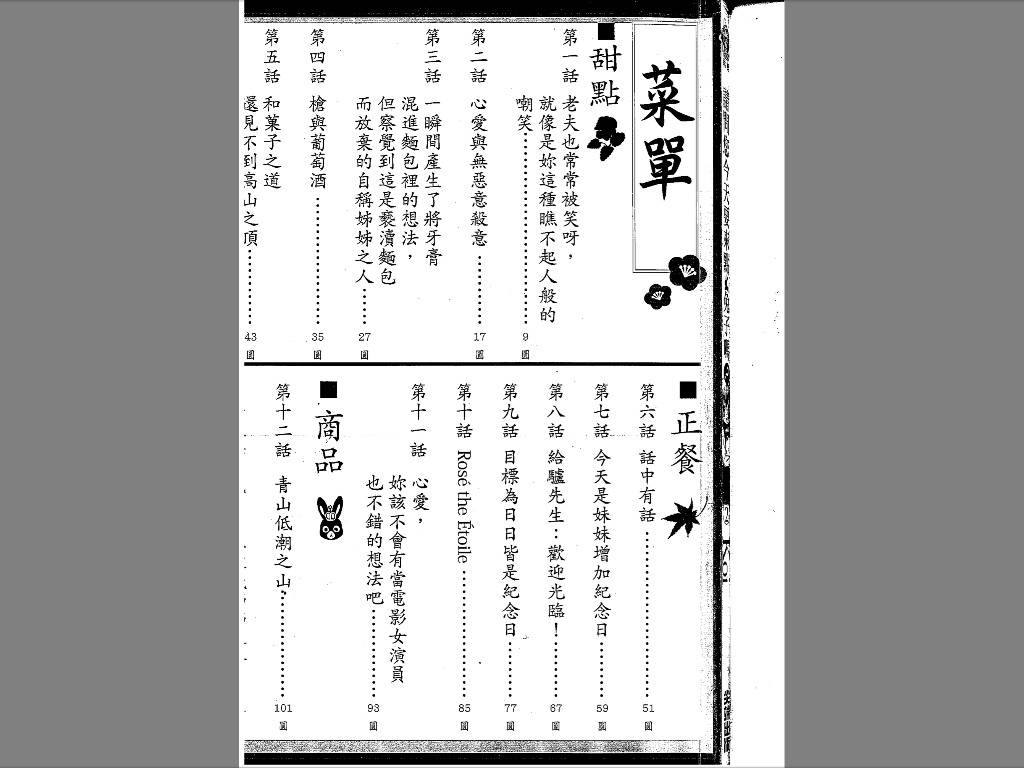 菜單
■甜點
第一話 老夫也常常被笑呀，
就像是妳這種瞧不起人般的
嘲笑……………………9圓
第二話 心愛與無惡意殺意………17圓
第三話 一瞬間產生了將牙膏
混進麵包裡的想法，
但察覺到這是褻瀆麵包
而放棄的自稱姊姊之人……27圓
第四話 槍與葡萄酒………………35圓
第五話 和菓子之道
還見不到高山之頂…………43圓
■正餐
第六話 話中有話……………………51圓
第七話 今天是妹妹增加紀念日………59圓
第八話 給驢先生：歡迎光臨！………67圓
第九話 目標為日日皆是紀念日………77圓
第十話 Rosé the Étoile………………85圓
第十一話 心愛，
妳該不會有當電影女演員
也不錯的想法吧……………93圓
■商品
第十二話 青山低潮之山……………101圓